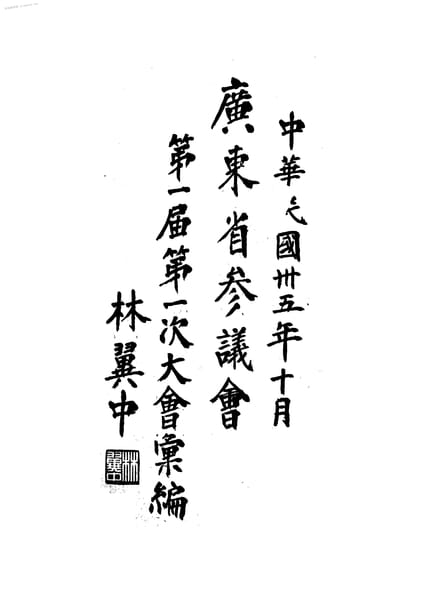 中華民國卅五年十月
廣東省參議會
第一屆第一次大會彙編
林翼中
林翼中